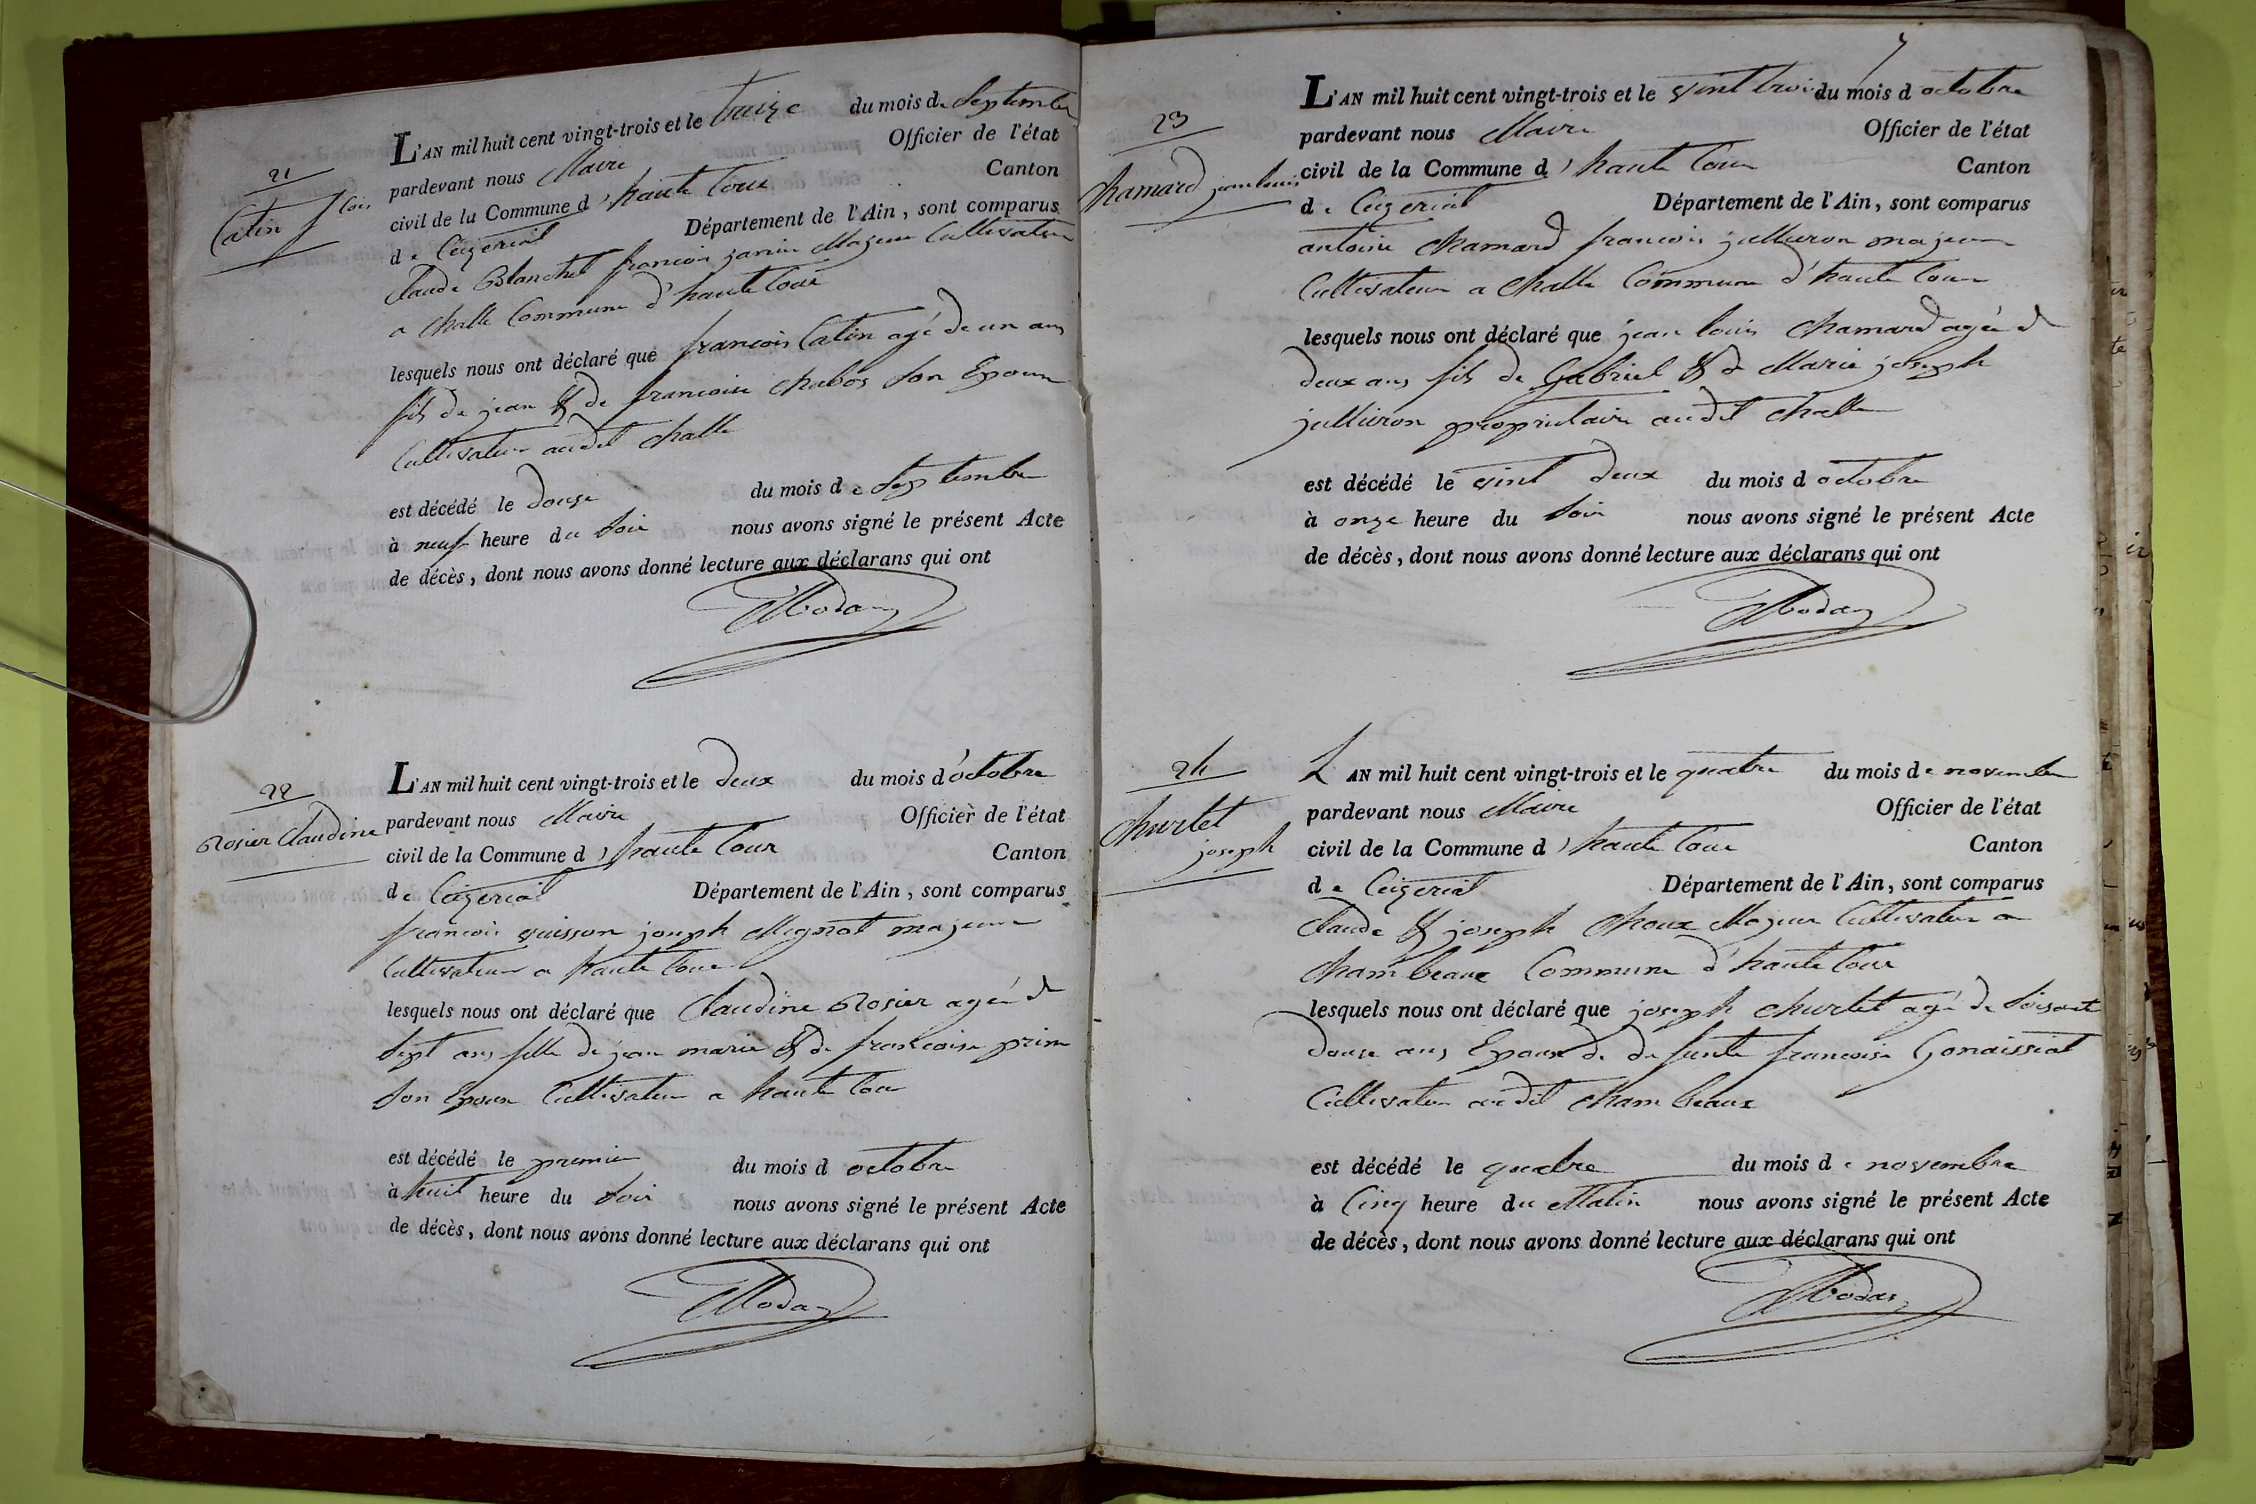 21
Catin fcois
L'AN mil huit cent vingt-trois et le traize du mois de Septembre
pardevant nous Maire Officier de l'état
civil de la Commune d'haute Cour Canton
de Ceizeriat Département de l'Ain, sont comparus
Claude Blanchet francois janin Majeur Cultivateur
a Challe Commune d'haute Cour
lesquels nous ont déclaré que francois Catin agé de un ans
fils de jean & de francoise Chabos son Epouse
Cultivateur audit Challe
est décédé le douze du mois de Septembre
à neuf heure du Soir nous avons signé le présent Acte
de décès, dont nous avons donné lecture aux déclarans qui ont
22
Rosier Claudine
L'AN mil huit cent vingt-trois et le deux du mois d'octobre
pardevant nous Maire Officier de l'état
civil de la Commune d'haute Cour Canton
de Ceizeriat Département de l'Ain, sont comparus
francois vuisson joseph Mignot majeur
Cultivateur a haute Cour
lesquels nous ont déclaré que Claudine Rosier agée d
Sept ans fille de jean marie & de francoise prin
son Epouse Cultivateur a haute Cour
est décédé le premier du mois d octobre
à huit heure du Soir nous avons signé le présent Acte
de décès, dont nous avons donné lecture aux déclarans qui ont
7
23
Chamard jean louis
L'AN mil huit cent vingt-trois et le vint trois du mois d octobre
pardevant nous Maire Officier de l'état
civil de la Commune d'haute Cour Canton
de Ceizeriat Département de l'Ain, sont comparus
antoine Chamard francois jullieron majeur
Cultivateur a Challe Commune d'haute Cour
lesquels nous ont déclaré que jean louis Chamard agée d
deux ans fils de Gabriel & de Marie joseph
jullieron propriétaire audit Challe
est décédé le vint deux du mois d octobre
à onze heure du Soir nous avons signé le présent Acte
de décès, dont nous avons donné lecture aux déclarans qui ont
24
Churlet
joseph
L AN mil huit cent vingt-trois et le quatre du mois de novembre
pardevant nous Maire Officier de l'état
civil de la Commune d'haute Cour Canton
de Ceizeriat Département de l'Ain, sont comparus
Claude & joseph Choux Majeur Cultivateur a
Cham beaux Commune d'haute Cour
lesquels nous ont déclaré que joseph Churlet agé de Soisante
douze ans Epoux de defunte francoise Gonaissiat
Cultivateur audit Cham beaux
est décédé le quatre du mois de novembre
à Cinq heure du Matin nous avons signé le présent Acte
de décès, dont nous avons donné lecture aux déclarans qui ont